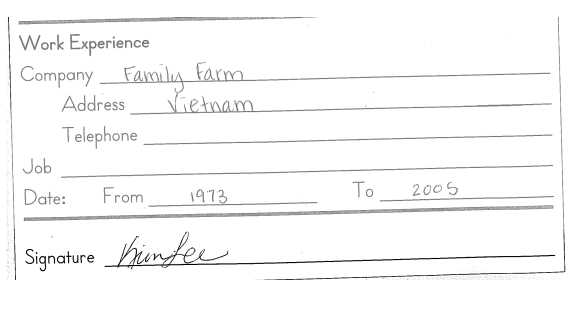 Work Experience
Company Family Farm
Address Vietnam
Telephone
Job
Date: From 1973 To 2005
Signature Kim Lee